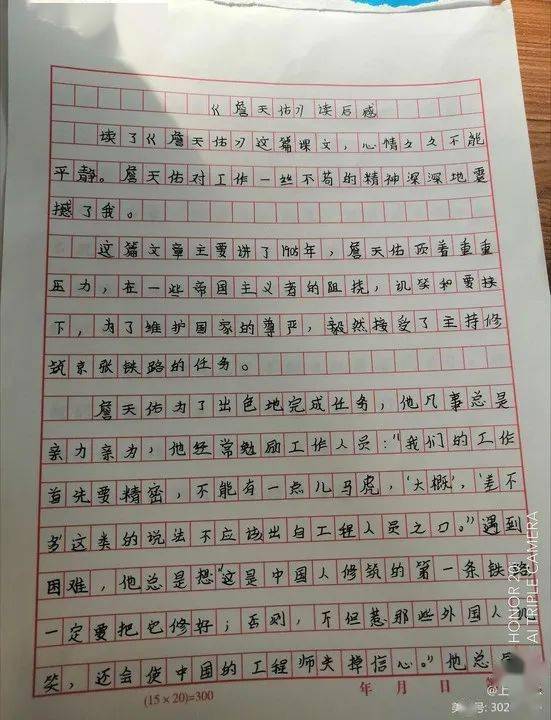 《詹天佑》读后感
读了《詹天佑》这篇课文，心情久久不能
平静。詹天佑对工作一丝不苟的精神深深地震
撼了我。
这篇文章主要讲了1905年，詹天佑顶着重重
压力，在一些帝国主义者的阻挠，讥笑和要挟
下，为了维护国家的尊严，毅然接受了主持修
筑京张铁路的任务。
詹天佑为了出色地完成任务，他凡事总是
亲力亲为，他经常勉励工作人员：“我们的工作
首先要精密，不能有一点儿马虎，‘大概’，‘差不
多’这类的说法不应该出自工程人员之口。”遇到
困难，他总是想“这是中国人修筑的第一条铁路
一定要把它修好；否则，不但惹那些外国人
笑，还会使中国的工程师失掉信心。”他总
(15×20)=300
年 月 日
HONOR 20i
AI TRIPLE CAMERA
@上
号: 302